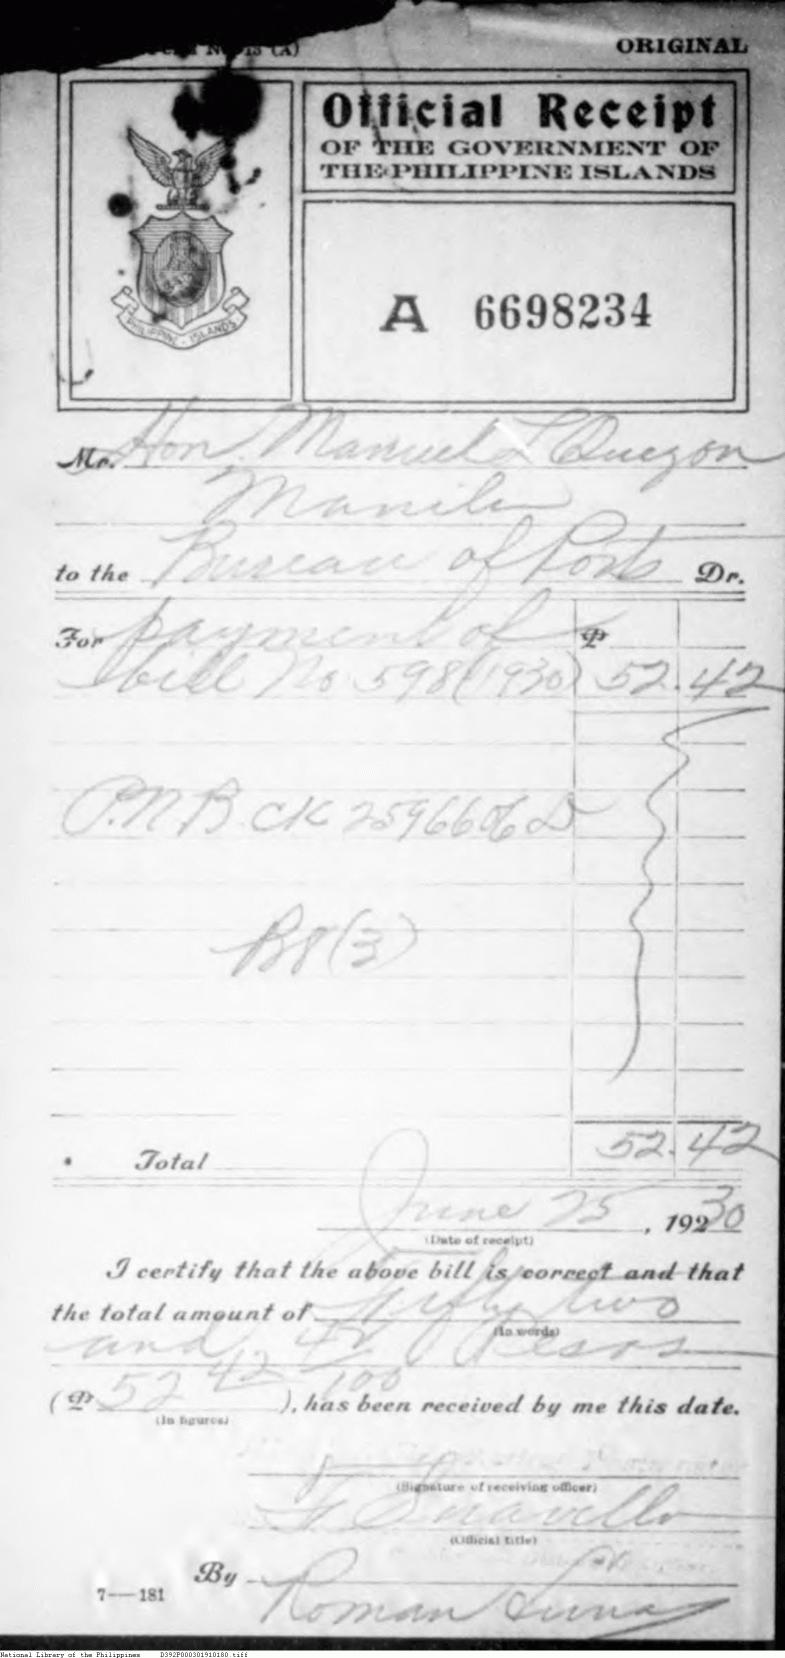 ORIGINAL
Official Receipt
OF THE GOVERNMENT OF
THE PHILIPPINE ISLANDS
PHILIPPINE - ISLANDS
A 6698234
Mr. Hon. Manuel L Quezon
Manila
to the Bureau of Posts Dr.
For payment of ₱
bill No. 598 (1930) 52.42
P.N.B. CK 259660
(3)
Total 52.42
June 25, 19230
(Date of receipt)
I certify that the above bill is correct and that
the total amount of Fifty two
(In words)
and 42/100 Pesos
(₱ 52 42 ), has been received by me this date.
(In figures)
(Signature of receiving officer)
(Official title)
By
Roman Luna
7—181
National Library of the Philippines D392P000301910180.tiff